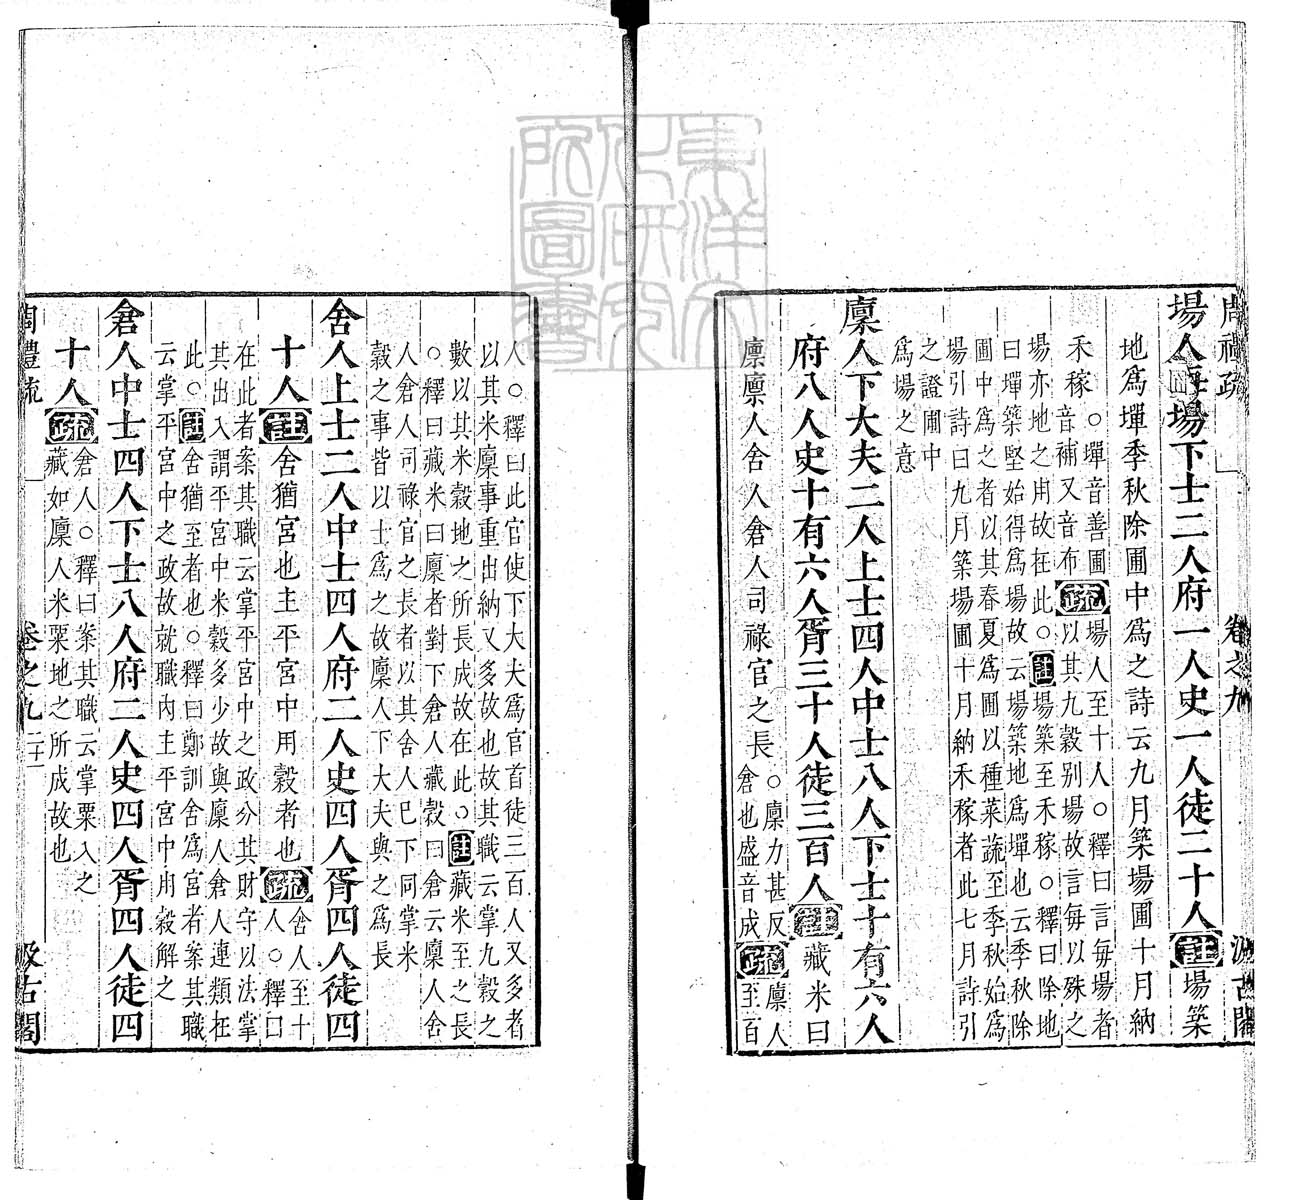 周禮疏 卷之九 汲古閣
場人每場下士二人府一人史一人徒二十人註場築
地爲墠季秋除圃中爲之詩云九月築場圃十月納
禾稼
○墠音善圃
音補又音布
疏
場人至十人○釋曰言每場者
以其九穀別場故言每以殊之
場亦地之用故在此○註場築至禾稼○釋曰除地
曰墠築堅始得爲場故云場築地爲墠也云季秋除
圃中爲之者以其春夏爲圃以種菜蔬至季秋始爲
場引詩曰九月築場圃十月納禾稼者此七月詩引
之證圃中
爲場之意
廩人下大夫二人上士四人中士八人下士十有六人
府八人史十有六人胥三十人徒三百人註藏米曰
廩廩人舍人倉人司祿官之長
○廩力甚反
倉也盛音成
疏
廩人
至百
人○釋曰此官使下大夫爲官首徒三百人又多者
以其米廩事重出納又多故也故其職云掌九穀之
數以其米穀地之所長成故在此○註藏米至之長
○釋曰藏米曰廩者對下倉人藏穀曰倉云廩人舍
人倉人司祿官之長者以其舍人已下同掌米
穀之事皆以士爲之故廩人下大夫與之爲長
舍人上士二人中士四人府二人史四人胥四人徒四
十人註舍猶宮也主平宮中用穀者也疏
舍人至十
人○釋曰
在此者案其職云掌平宮中之政分其財守以法掌
其出入謂平宮中米穀多少故與廩人倉人連類在
此○註舍猶至者也○釋曰鄭訓舍爲宮者案其職
云掌平宮中之政故就職內主平宮中用穀解之
倉人中士四人下士八人府二人史四人胥四人徒四
十人疏
倉人○釋曰案其職云掌粟入之
藏如廩人米粟地之所成故也
周禮疏 卷之九 二十一 汲古閣
東洋文化研究所圖書